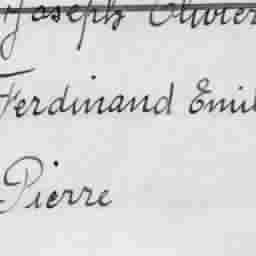 Joseph Olivier
Ferdinand Emil
Pierre